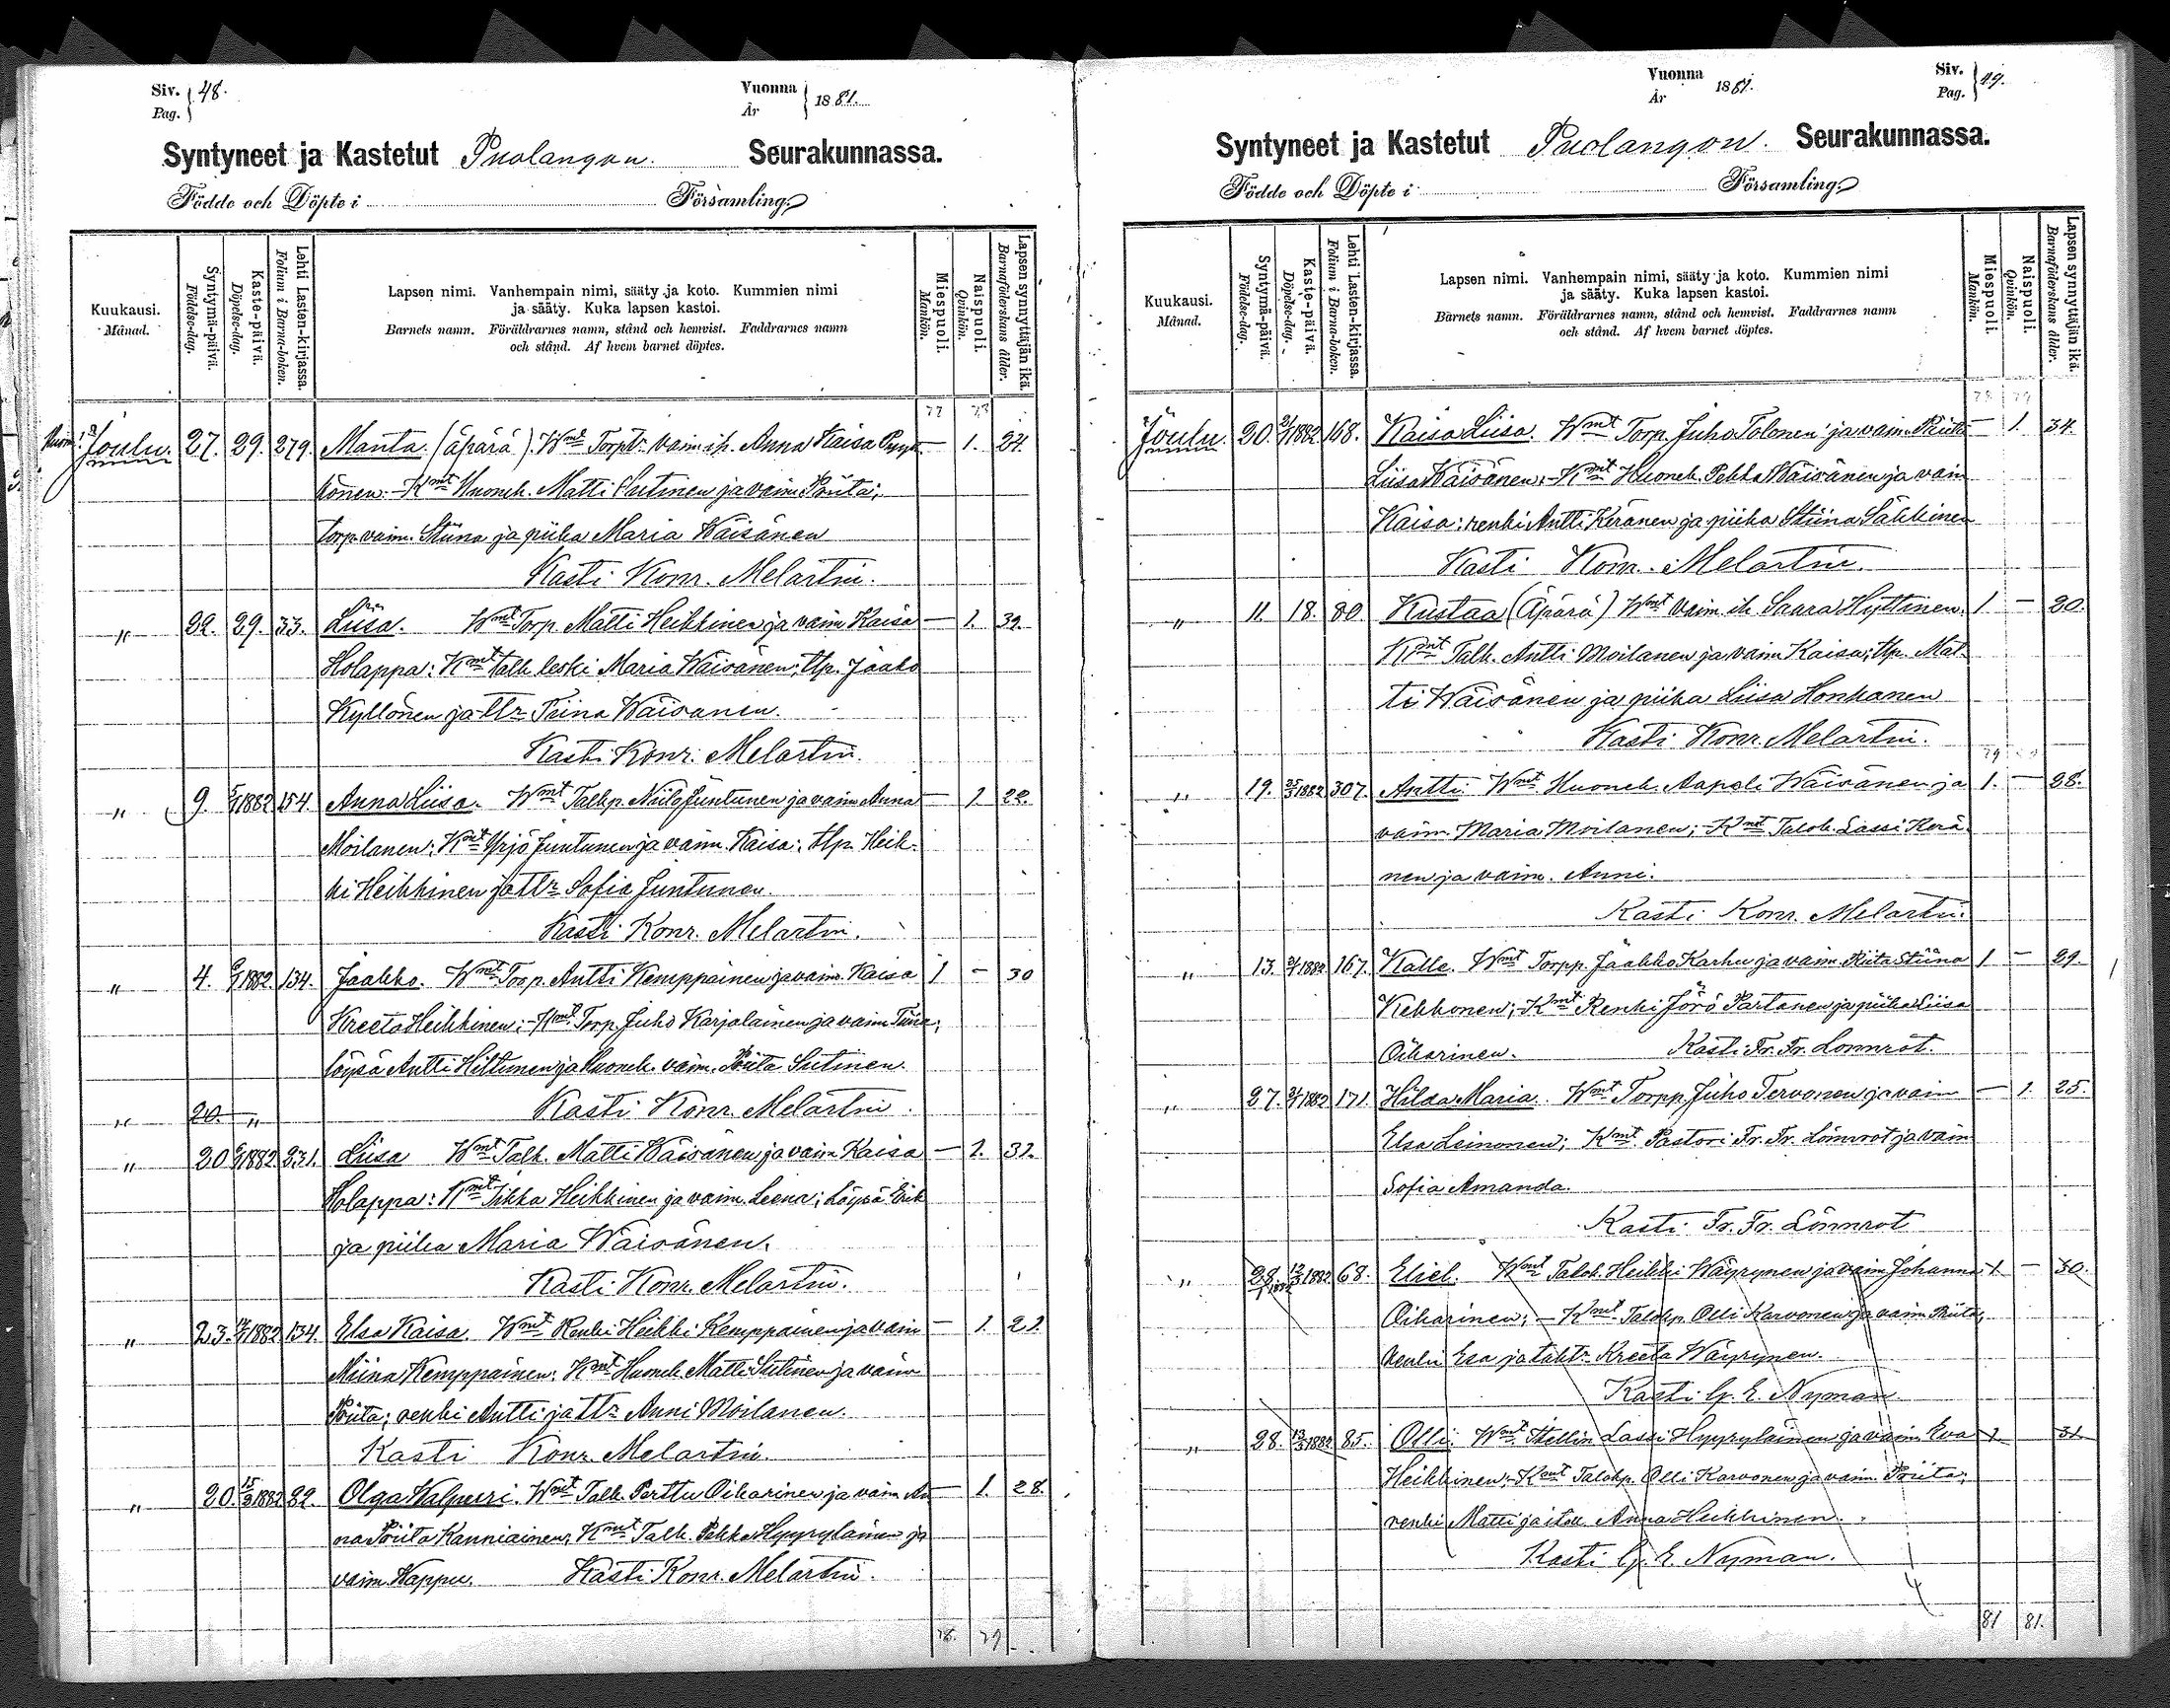 Siv. 48.
Pag.
Vuonna 1881.
År
Syntyneet ja Kastetut Puolangon Seurakunnassa.
Födde och Döpte i Församling.
Kuukausi. Månad.
Syntymä-päivä. Födelse-dag.
Kaste-päivä. Döpelse-dag.
Lehti Lasten-kirjassa. Folium i Barna-boken.
Lapsen nimi. Vanhempain nimi, sääty ja koto. Kummien nimi
ja sääty. Kuka lapsen kastoi.
Barnets namn. Föräldrarnes namn, stånd och hemvist. Faddrarnes namn
och stånd. Af hvem barnet döptes.
Miespuoli. Mankön.
Naispuoli. Qvinkön.
Lapsen synnyttäjän ikä. Barnaföderskans ålder.
77 78
Joulu. 27. 29. 279. Manta. (äpärä). Wmt Torptr. vaim. ih. Anna Kaisa — 1. 24.
Kmt Huoneh. Matti Sutinen ja vaim. Riita;
torp. vaim. Stiina ja piika Maria Wäisänen
Kasti Konr. Melartin.
" 22. 29. 33. Liisa. Wmt Torp. Matti Heikkinen ja vaim. Kaisa — 1. 39.
Holappa: Kmt talk. leski Maria Wäisänen; tlp. Jaako
Kyllönen ja ttr Tiina Wäisänen.
Kasti Konr. Melartin.
" 9. 5/1 1882 154. Anna Liisa. Wmt Talkp. Niilo Juntunen ja vaim. Anna — 1 22.
Moilanen; Kmt Yrjö Juntunen ja vaim. Kaisa; tlp. Heik-
ki Heikkinen ja ttr Sofia Juntunen.
Kasti Konr. Melartin.
" 4. 6/1 1882. 134. Jaakko. Wmt Torp. Antti Kemppainen ja vaim. Kaisa 1 — 30
Kreeta Heikkinen; Kmt Torp. Juho Karjalainen ja vaim. Tiina;
löysä Antti Hiltunen ja Huoneh. vaim. Riita Sutinen.
" 20. " Kasti Konr. Melartin.
" 20 6/1 1882 231. Liisa Wmt Talk. Matti Wäisänen ja vaim. Kaisa — 1. 32.
Holappa: Kmt Iikka Heikkinen ja vaim. Leena; Löysä Erik
ja piika Maria Wäisänen.
Kasti Konr. Melartin.
" 23. 1882 134. Elsa Kaisa. Wmt Renki Heikki Kemppainen ja vaim — 1. 21.
Miina Kemppainen; Kmt Huoneh. Matti Sutinen ja vaim
Riita; renki Antti ja ttr Anni Moilanen.
Kasti Konr. Melartin.
" 20. 15/3 1882 82. Olga Walpuri. Wmt Talk. Perttu Oikarinen ja vaim An — 1. 28.
na Riita Kanniainen; Kmt Talk. Pekka Hyyryläinen ja
vaim. Wappu. Kasti Konr. Melartin.
78. 79.
Vuonna 1881.
År
Siv. 49.
Pag.
Syntyneet ja Kastetut Puolangon. Seurakunnassa.
Födde och Döpte i Församling.
Kuukausi. Månad.
Syntymä-päivä. Födelse-dag.
Kaste-päivä. Döpelse-dag.
Lehti Lasten-kirjassa. Folium i Barna-boken.
Lapsen nimi. Vanhempain nimi, sääty ja koto. Kummien nimi
ja sääty. Kuka lapsen kastoi.
Barnets namn. Föräldrarnes namn, stånd och hemvist. Faddrarnes namn
och stånd. Af hvem barnet döptes.
Miespuoli. Mankön.
Naispuoli. Qvinkön.
Lapsen synnyttäjän ikä. Barnaföderskans ålder.
78 79
Joulu. 20. 1882 168. Kaisa Liisa. Wmt Torp. Juho Tolonen ja vaim. Riita — 1. 34.
Liisa Wäisänen; Kmt Huoneh. Pekka Wäisänen ja vaim
Kaisa; renki Antti Keränen ja piika Stiina Säkkinen
Kasti Konr. Melartin.
" 11. 18. 80. Kustaa (Äpärä) Wmt vaim. ih. Saara Hyttinen. 1 — 20.
Kmt Talk. Antti Moilanen ja vaim Kaisa; tlp. Mat-
ti Wäisänen ja piika Liisa Honkanen
Kasti Konr. Melartin.
" 19. 25/3 1882 307. Antti. Wmt Huoneh. Aapeli Wäisänen ja 1. — 28.
vaim. Maria Moilanen; Kmt Talok. Lassi Kerä-
nen ja vaim. Anni.
Kasti Konr. Melartin.
" 13. 1882 167. Kalle. Wmt Torpp. Jaakko Karhu ja vaim. Riita Stiina 1 — 29.
Kekkonen; Kmt Renki Jörö Partanen ja piika Liisa
Oikarinen. Kasti Fr. Fr. Lönnrot.
" 27. 1882 171. Hilda Maria. Wmt Torpp. Juho Tervonen ja vaim — 1. 25.
Elsa Leinonen; Kmt Pastori Fr. Fr. Lönnrot ja vaim
Sofia Amanda.
Kasti Fr. Fr. Lönnrot
" 28. 12/3 1882 68. Eliel. Wmt Talok. Heikki Wäyrynen ja vaim Johanna 1. — 30.
Oikarinen; Kmt Talokp. Olli Karvonen ja vaim. Riita;
renki Esa ja taltr Kreeta Wäyrynen.
Kasti G. E. Nyman
" 28. 12/3 1882 85. Olli. Wmt Itellin. Lassi Hyyryläinen ja vaim Eva 1 31
Heikkinen; Kmt Talokp. Olli Karvonen ja vaim. Riita;
renki Matti ja itell. Anna Heikkinen.
Kasti G. E. Nyman.
81 81.